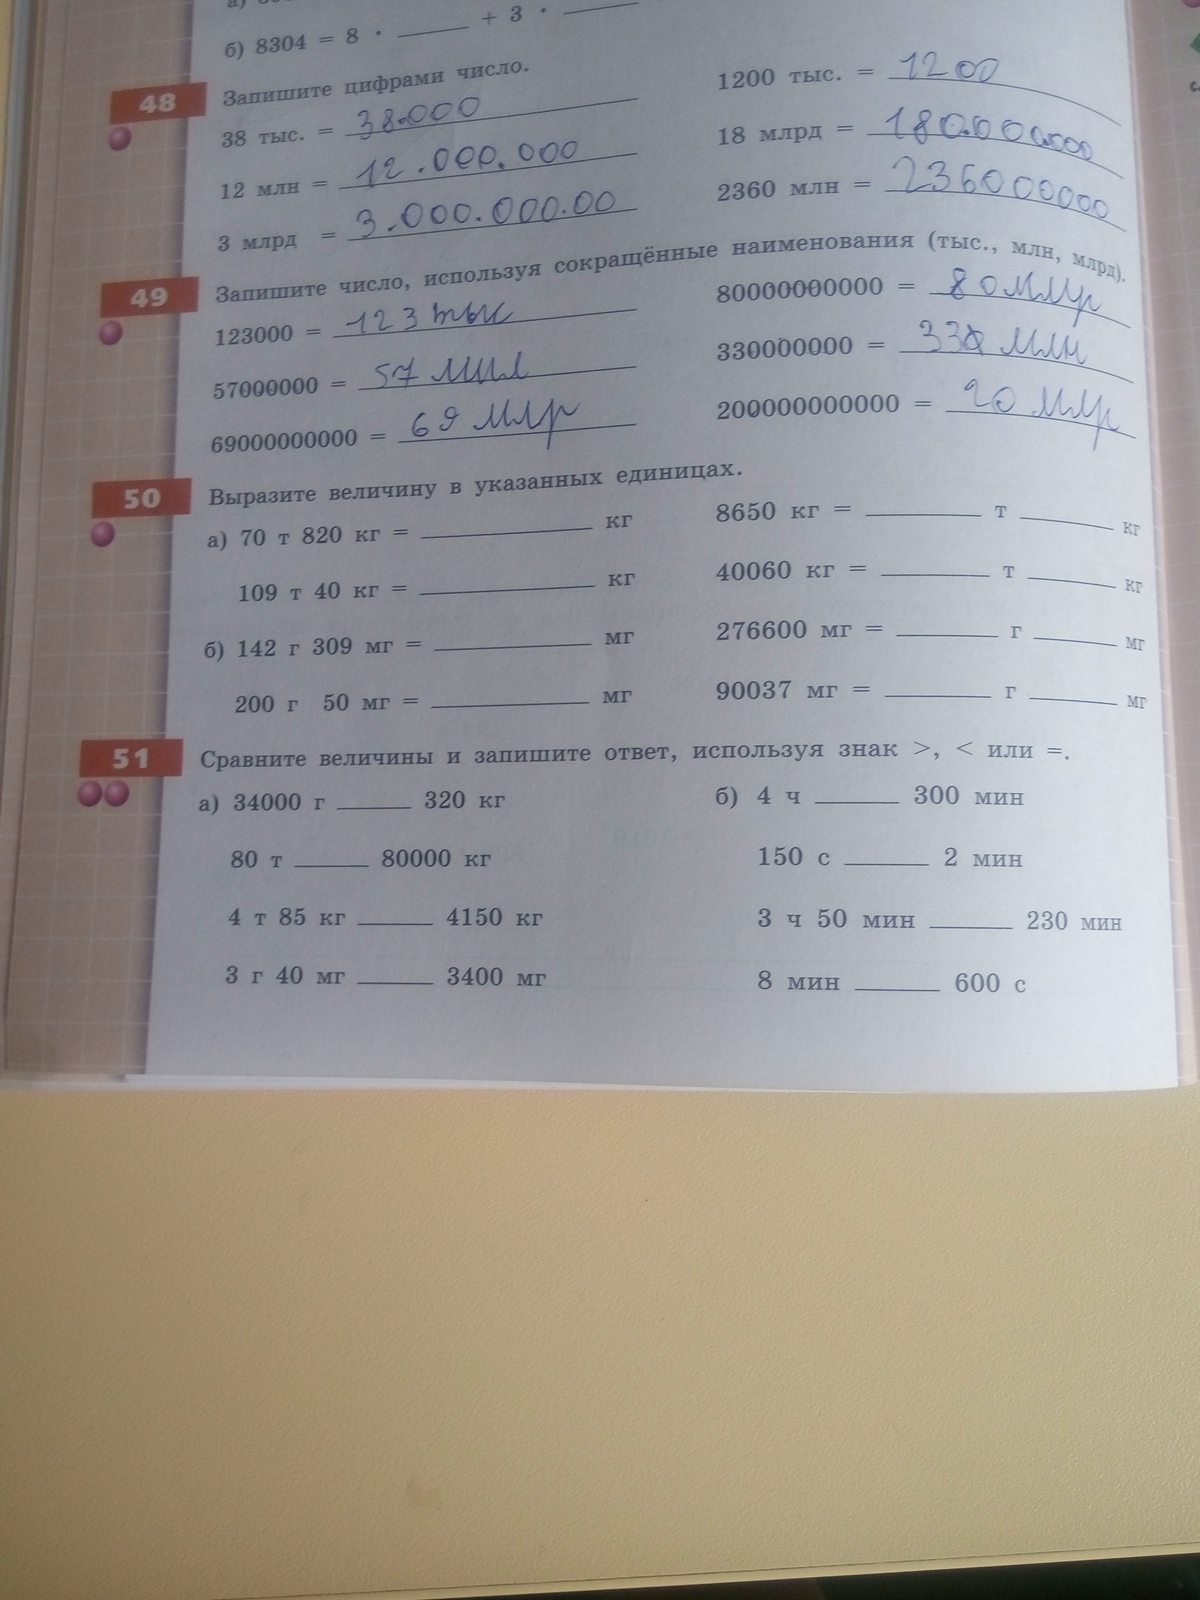 б) 8304 = 8 · ____ + 3 · ____
48 Запишите цифрами число.
38 тыс. = 38.000
1200 тыс. = 1200
12 млн = 12.000.000
18 млрд = 18000000000
3 млрд = 3.000.000.00
2360 млн = 236000000
49 Запишите число, используя сокращённые наименования (тыс., млн, млрд).
123000 = 123 тыс
80000000000 = 80 млр
57000000 = 57 мил
330000000 = 330 млн
69000000000 = 69 млр
200000000000 = 20 млр
50 Выразите величину в указанных единицах.
а) 70 т 820 кг = ____ кг
8650 кг = ____ т ____ кг
109 т 40 кг = ____ кг
40060 кг = ____ т ____ кг
б) 142 г 309 мг = ____ мг
276600 мг = ____ г ____ мг
200 г 50 мг = ____ мг
90037 мг = ____ г ____ мг
51 Сравните величины и запишите ответ, используя знак >, < или =.
а) 34000 г ____ 320 кг
б) 4 ч ____ 300 мин
80 т ____ 80000 кг
150 с ____ 2 мин
4 т 85 кг ____ 4150 кг
3 ч 50 мин ____ 230 мин
3 г 40 мг ____ 3400 мг
8 мин ____ 600 с